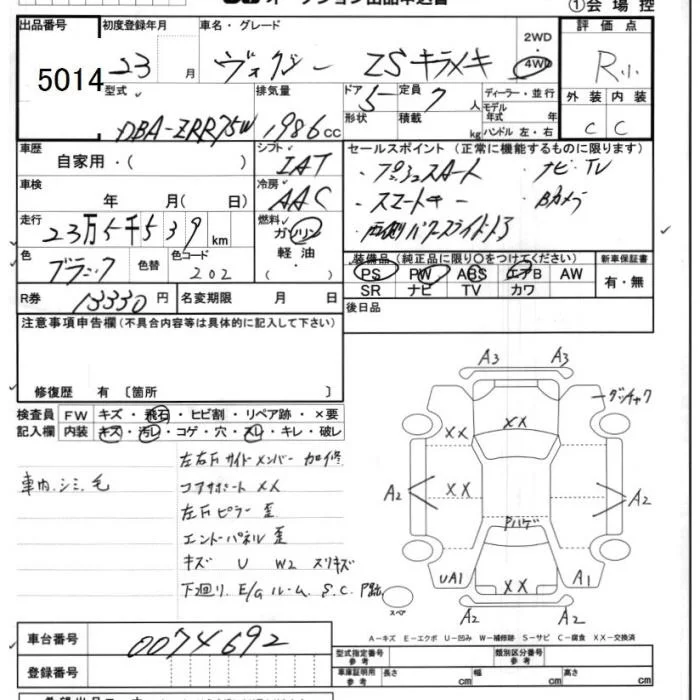 ①会場控
出品番号 初度登録年月 車名・グレード 2WD・4WD 評価点
5014 23 月 ヴォクシー ZSキラメキ R小
型式 排気量 ドア 5 定員 7人 ディーラー・並行 外装 内装
DBA-ZRR75W 1986cc 形状 積載 kg モデル年式 年 ハンドル 左・右 C C
車歴 自家用・( ) シフト IAT
セールスポイント(正常に機能するものに限ります)
・プッシュスタート ・ナビ・TV
車検 年 月( 日) 冷房 AAC
・スマートキー ・Bカメラ
走行 23万5千539km 燃料 ガソリン 軽油・( )
・両側パワースライドドア
色 ブラック 色替 色コード 202
装備品(純正品に限り○をつけてください) 新車保証書
PS PW ABS エアB AW 有・無
SR ナビ TV カワ
R券 13330円 名変期限 月 日
後日品
注意事項申告欄(不具合内容等は具体的に記入して下さい)
修復歴 有 〔箇所 〕
検査員 FW キズ・飛石・ヒビ割・リペア跡・×要
記入欄 内装 キズ・汚レ・コゲ・穴・スレ・キレ・破レ
車内.シミ.毛
左右Fサイドメンバー 加修
コアサポート XX
左Fピラー 歪
エンドパネル 歪
キズ U W2 スリキズ
下回り.E/Gルーム S.C.
A3 A3
XX
A2 XX A2
Pハゲ
UA1 XX A1
スペア A2 A2
A-キズ E-エクボ U-凹み W-補修跡 S-サビ C-腐食 XX-交換済
車台番号 0074692
型式指定番号 参考 類別区分番号 参考
登録番号
車庫証明用 参考 長さ cm 幅 cm 高さ cm